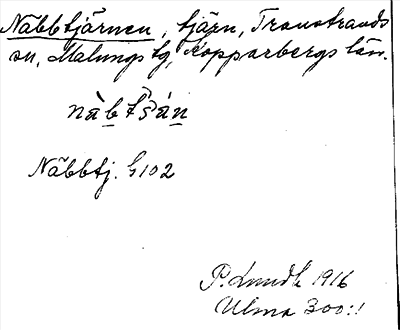 Näbbtjärnen, tjärn, Transtrands
sn, Malungs tg, Kopparbergs län.
nàb tšán
Näbbtj. G102
P. Lundh 1916
Ulma 300:1